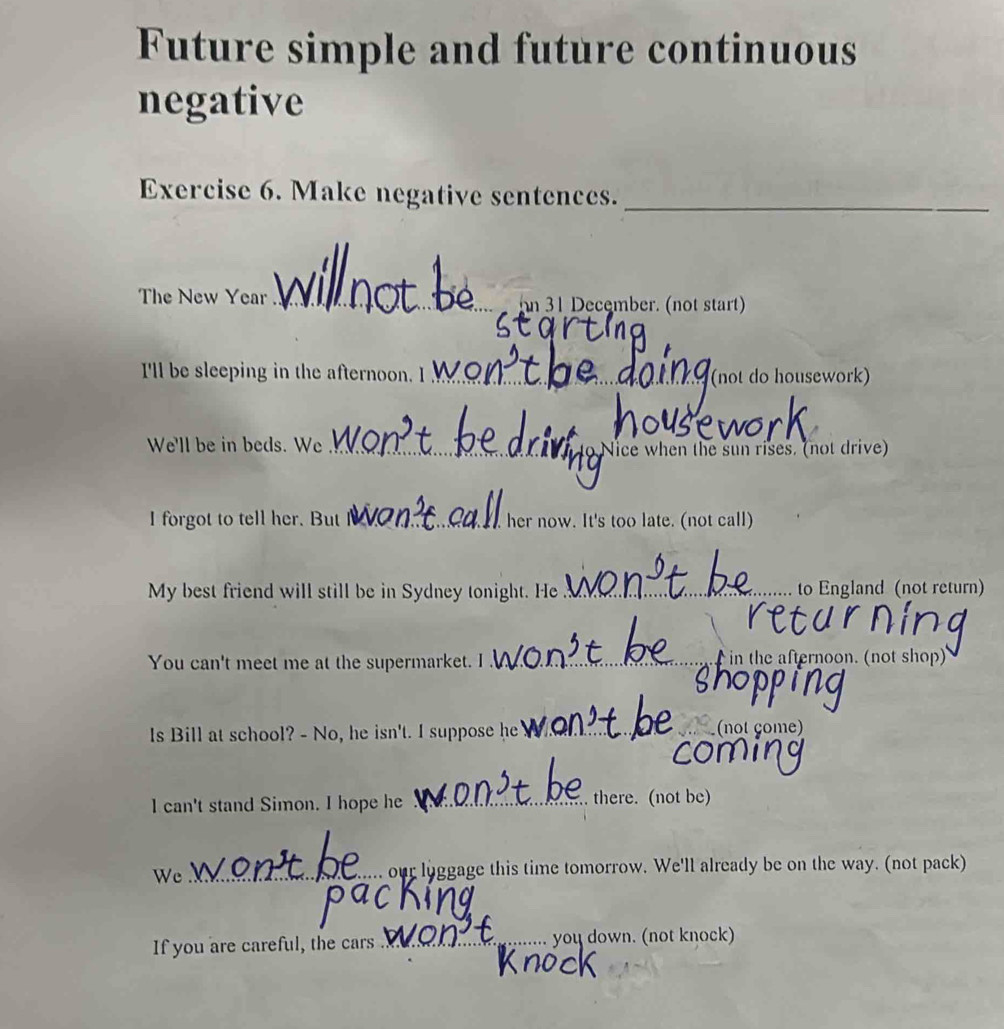 Future simple and future continuous
negative
Exercise 6. Make negative sentences.
The New Year will not be on 31 December. (not start)
starting
I'll be sleeping in the afternoon. I won't be doing (not do housework)
housework
We'll be in beds. We won't be driving to Nice when the sun rises. (not drive)
I forgot to tell her. But I won't call her now. It's too late. (not call)
My best friend will still be in Sydney tonight. He won't be to England (not return)
returning
You can't meet me at the supermarket. I won't be in the afternoon. (not shop)
shopping
Is Bill at school? - No, he isn't. I suppose he won't be (not come)
coming
I can't stand Simon. I hope he won't be there. (not be)
We won't be our luggage this time tomorrow. We'll already be on the way. (not pack)
packing
If you are careful, the cars won't you down. (not knock)
knock